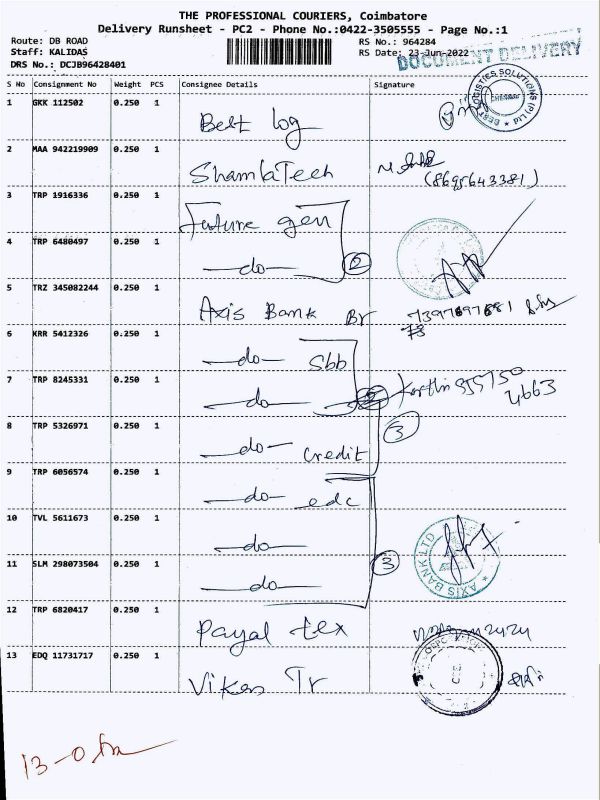 THE PROFESSIONAL COURIERS, Coimbatore
Delivery Runsheet - PC2 - Phone No.:0422-3505555 - Page No.:1
Route: DB ROAD RS No.: 964284
Staff: KALIDAS RS Date: 23-Jun-2022
DRS No.: DCJB96428401
DOCUMENT DELIVERY
S No Consignment No Weight PCS Consignee Details Signature
1 GKK 112502 0.250 1 Best log
BEST LOGISTICS SOLUTIONS (P) Ltd CHENNAI
2 MAA 942219909 0.250 1 ShambaTech
(8695643381)
3 TRP 1916336 0.250 1 future gen
4 TRP 6480497 0.250 1 —do— 2
5 TRZ 345082244 0.250 1 Axis Bank Br
6 KRR 5412326 0.250 1 —do— Sbb
7 TRP 8245331 0.250 1 —do—
4663
8 TRP 5326971 0.250 1 —do— credit 3
9 TRP 6056574 0.250 1 —do— edc
10 TVL 5611673 0.250 1 —do—
AXIS BANK LTD
11 SLM 298073504 0.250 1 —do— 3
12 TRP 6820417 0.250 1 Payal tex
13 EDQ 11731717 0.250 1 Vikas Tr
13-0